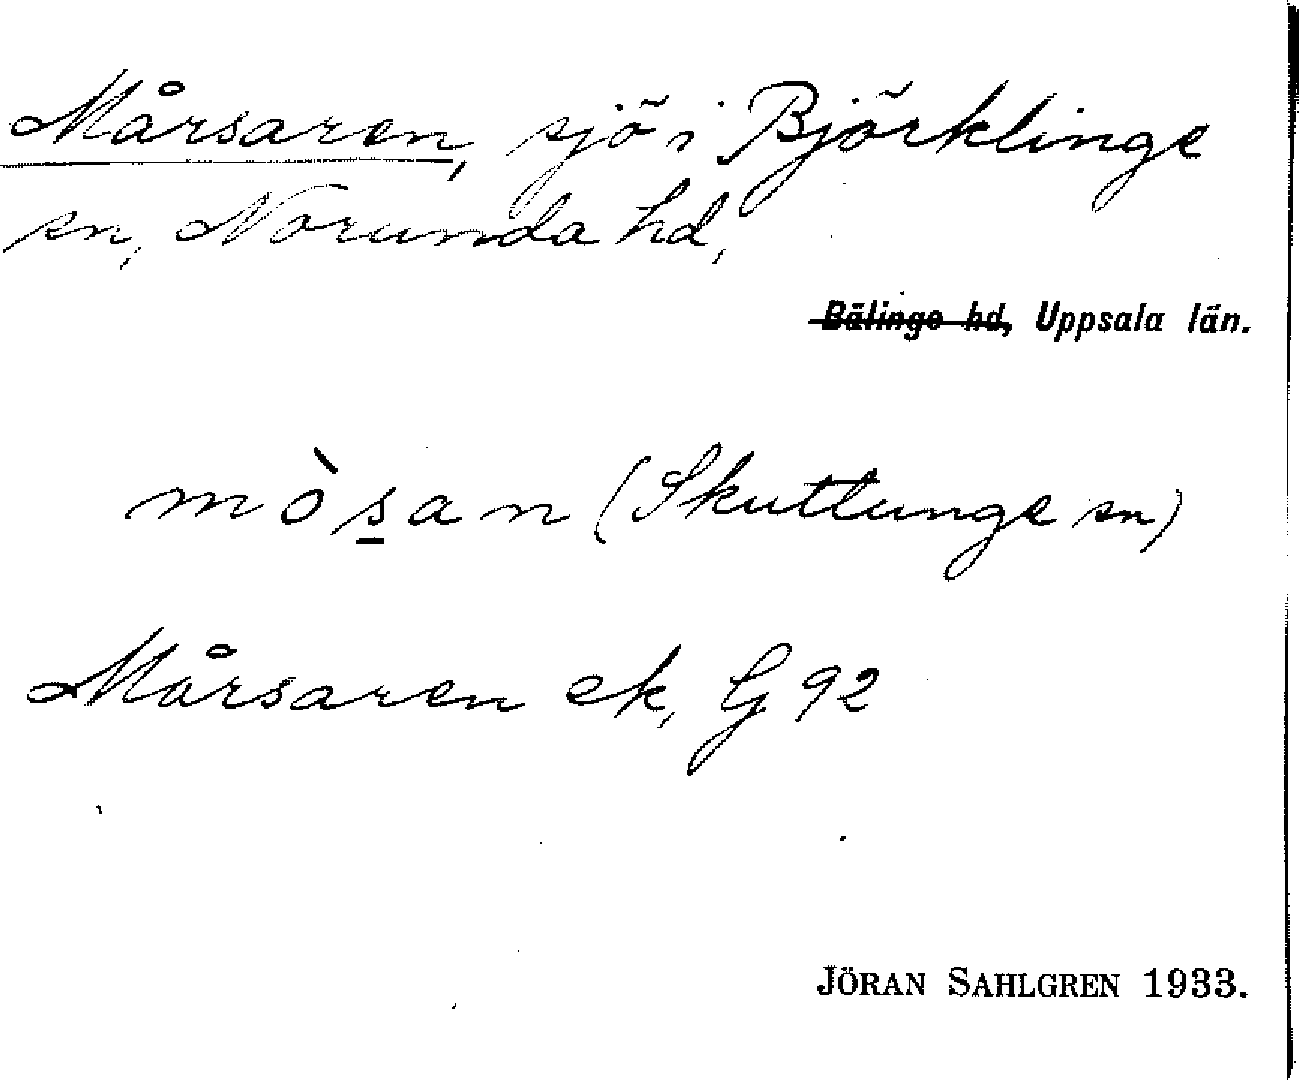 Mårsaren, sjö i Björklinge
sn, Norunda hd,
Bälinge hd, Uppsala län.
mòs̲an (Skuttunge sn)
Mårsaren ek, G 92
JÖRAN SAHLGREN 1933.